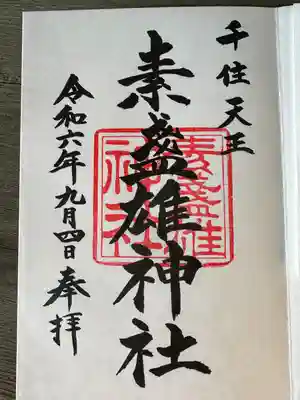 千住天王
素盞雄神社
令和六年九月四日奉拝
素盞雄
神社